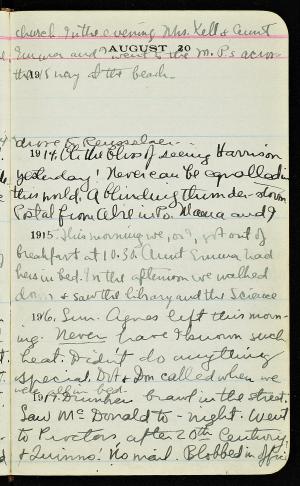 church. In the evening Mrs. Kell & Aunt
Emma and I went to the M. P.s across
AUGUST 20
the way at the beach.
drove to Rensselaer.
1914. Oh the bliss of seeing Harrison
yesterday! Never can be equalled in
this world. A blinding thunder-storm
Postal from Cele in Mama and I
1915. This morning we got out of
breakfast at 10.30. Aunt Emma had
hers in bed. In the afternoon we walked
down & saw the library and the Science
1916. Sun. Agnes left this morn-
ing. Never have I known such
heat. Didn't do anything
special. Dot & Dm called when we
were all in bed.
1917. Drunken brawl in the street.
Saw McDonald to-night. Went
to Proctors, after 20th Century,
& Quinns. No mail. Blobbed in office